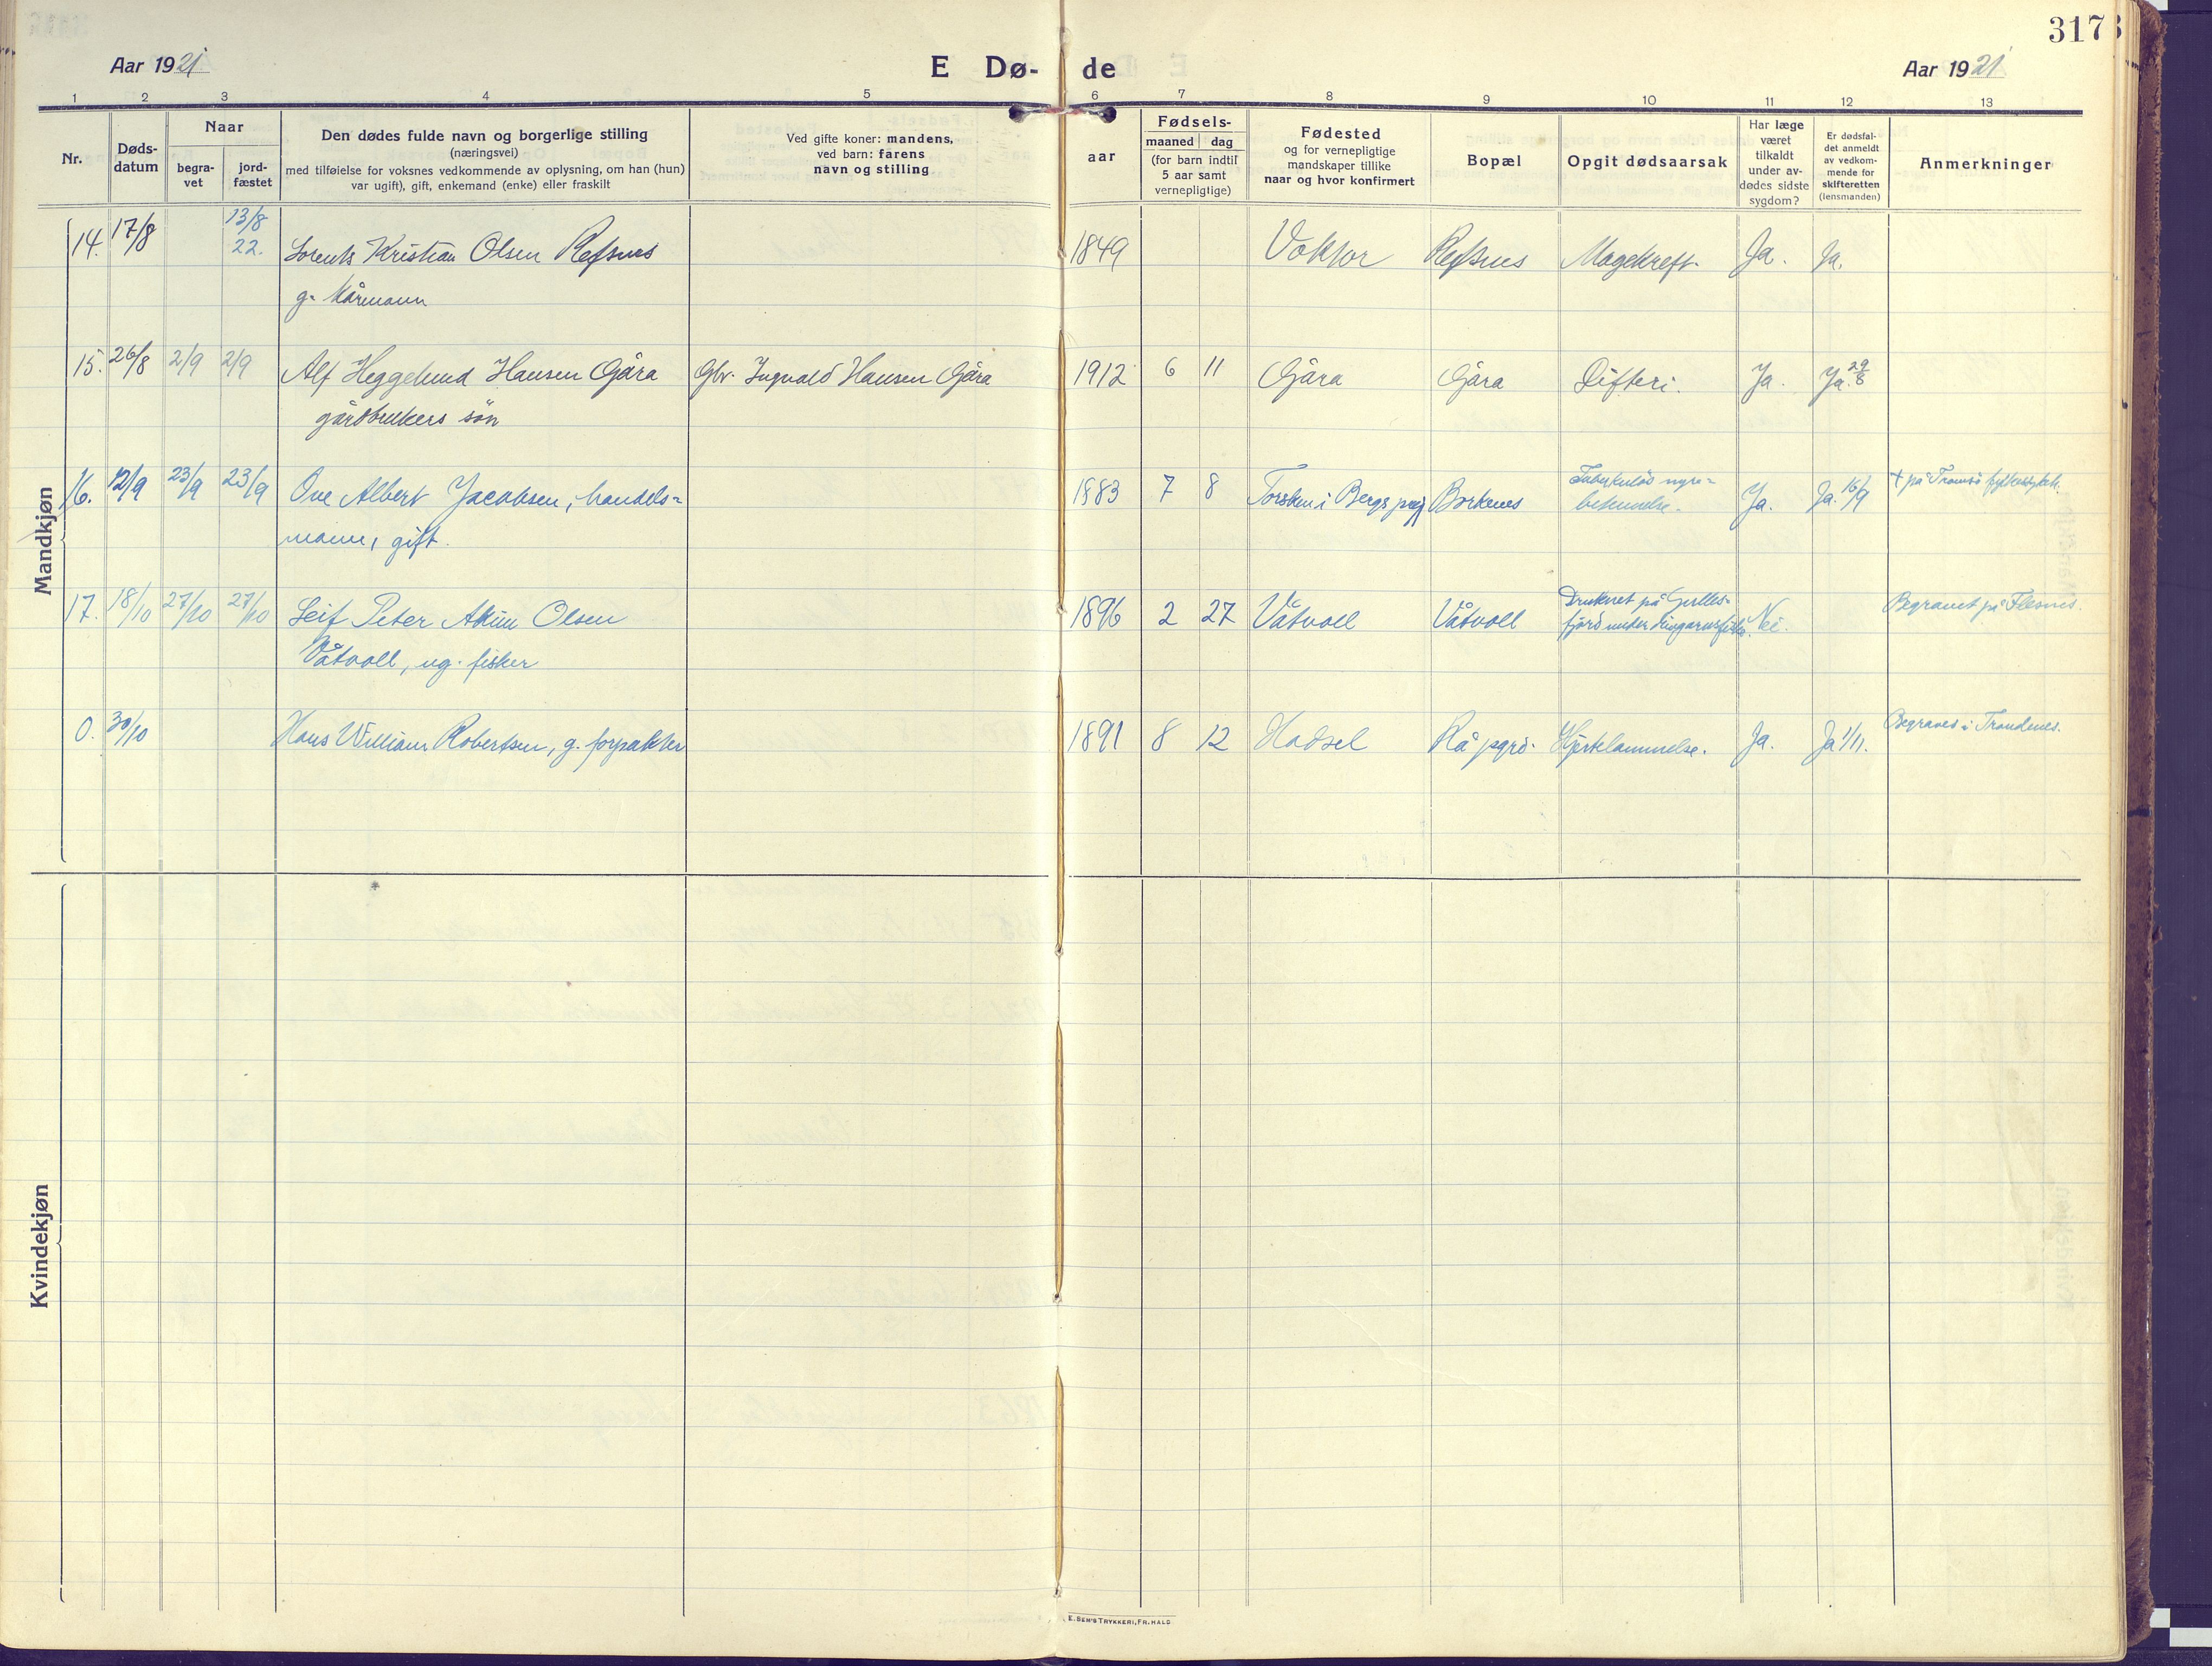 317
Aar 1921
E Dø-
de
Aar 1921
1 2 3 4 5 6 7 8 9 10 11 12 13
Nr.
Døds-
datum
Naar
begra-
vet
jord-
fæstet
Den dødes fulde navn og borgerlige stilling
(næringsvei)
med tilføielse for voksnes vedkommende av oplysning, om han (hun)
var ugift), gift, enkemand (enke) eller fraskilt
Ved gifte koner: mandens,
ved barn: farens
navn og stilling
aar
Fødsels-
maaned dag
(for barn indtil
5 aar samt
vernepligtige)
Fødested
og for vernepligtige
mandskaper tillike
naar og hvor konfirmert
Bopæl
Opgit dødsaarsak
Har læge
været
tilkaldt
under av-
dødes sidste
sygdom?
Er dødsfal-
det anmeldt
av vedkom-
mende for
skifteretten
(lensmanden)
Anmerkninger
Mandkjøn
14. 17/8 13/8 22. Lorents Kristian Olsen Refsnes 1849 Refsnes Magekreft. Ja. Ja.
g. kårmann
15. 26/8 2/9 2/9 Alf Heggelund Hansen Gåra Gbr. Ingvald Hansen Gåra 1912 6 11 Gåra Gåra Difteri. Ja. Ja. 29/8
gårdbrukers sön
16. 12/9 23/9 23/9 Ove Albert Jacobsen, handels- 1883 7 8 Torsken i Bergs pgj Borkenes Tuberkulös nyre- Ja. Ja. 16/9 † på Tromsö fylkessykeh.
mann, gift.
17. 18/10 27/10 27/10 Leif Peter Akim Olsen 1896 2 27 Våtvoll Våtvoll Druknet på Gulles-
fjord under Nei. Begravet på Flesnes.
Våtvoll, ug. fisker
0. 30/10 Hans William Robertsen, g. forpakter 1891 8 12 Hadsel Rå pgrd. Hjertelammelse. Ja. Ja 1/11. Begraves i Trondenes.
Kvindekjøn
E. SEM'S TRYKKERI, FR.HALD